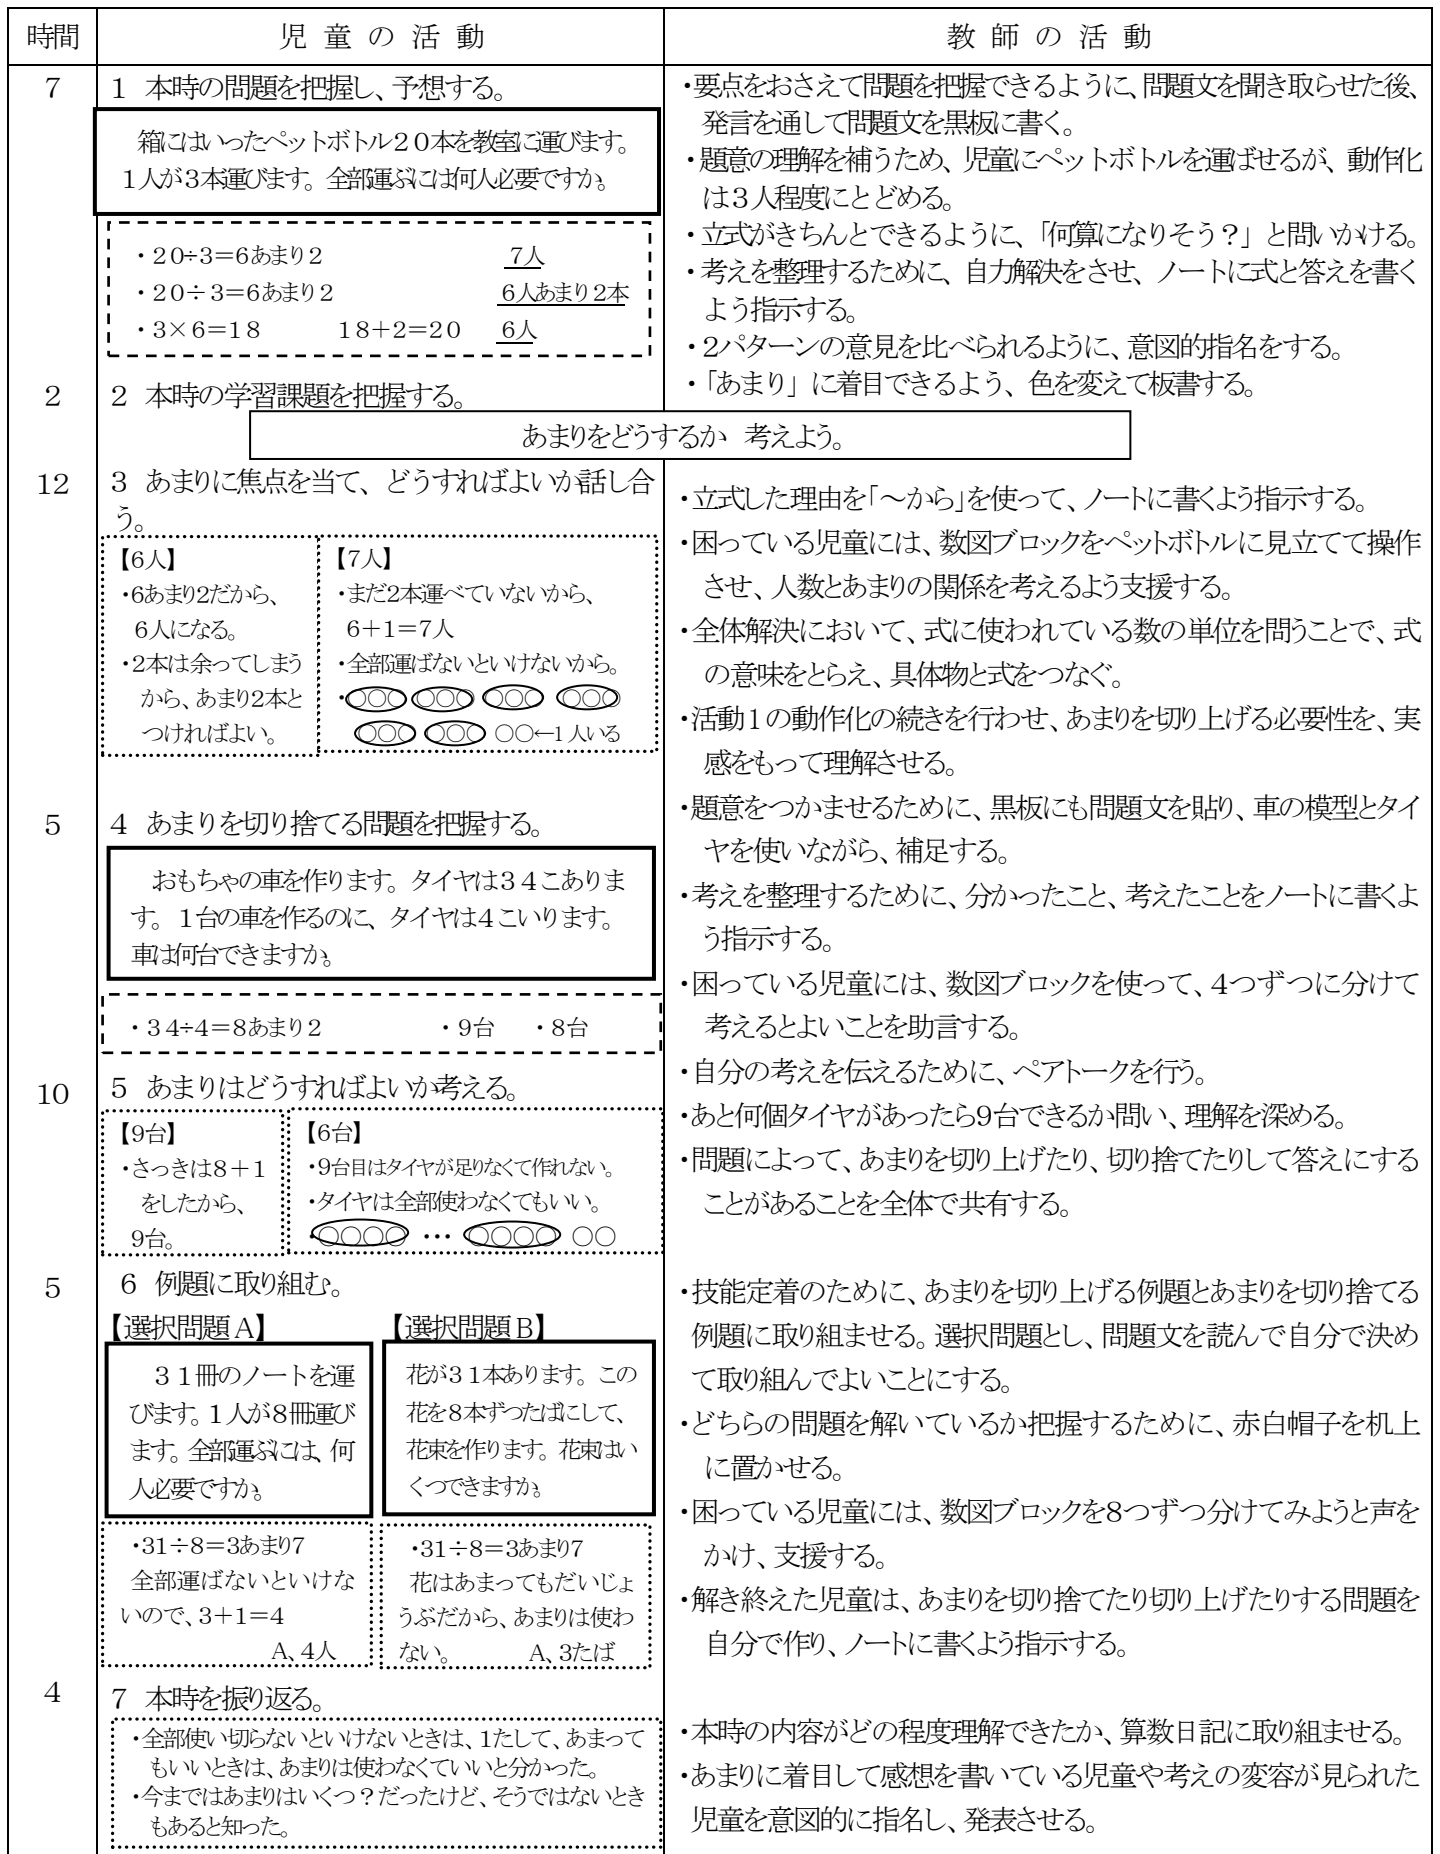 時間 児童の活動 教師の活動
7 1 本時の問題を把握し、予想する。
箱にはいったペットボトル20本を教室に運びます。
1人が3本運びます。全部運ぶには何人必要ですか。
・20÷3=6あまり2 7人
・20÷3=6あまり2 6人あまり2本
・3×6=18 18+2=20 6人
・要点をおさえて問題を把握できるように、問題文を聞き取らせた後、
発言を通して問題文を黒板に書く。
・題意の理解を補うため、児童にペットボトルを運ばせるが、動作化
は3人程度にとどめる。
・立式がきちんとできるように、「何算になりそう？」と問いかける。
・考えを整理するために、自力解決をさせ、ノートに式と答えを書く
よう指示する。
・2パターンの意見を比べられるように、意図的指名をする。
・「あまり」に着目できるよう、色を変えて板書する。
2 2 本時の学習課題を把握する。
あまりをどうするか 考えよう。
12 3 あまりに焦点を当て、どうすればよいか話し合
う。
【6人】
・6あまり2だから、
6人になる。
・2本は余ってしまう
から、あまり2本と
つければよい。
【7人】
・まだ2本運べていないから、
6+1=7人
・全部運ばないといけないから。
・○○○ ○○○ ○○○ ○○○
○○○ ○○○ ○○←1人いる
・立式した理由を「～から」を使って、ノートに書くよう指示する。
・困っている児童には、数図ブロックをペットボトルに見立てて操作
させ、人数とあまりの関係を考えるよう支援する。
・全体解決において、式に使われている数の単位を問うことで、式
の意味をとらえ、具体物と式をつなぐ。
・活動1の動作化の続きを行わせ、あまりを切り上げる必要性を、実
感をもって理解させる。
5 4 あまりを切り捨てる問題を把握する。
おもちゃの車を作ります。タイヤは34こありま
す。1台の車を作るのに、タイヤは4こいります。
車は何台できますか。
・34÷4=8あまり2 ・9台 ・8台
・題意をつかませるために、黒板にも問題文を貼り、車の模型とタイ
ヤを使いながら、補足する。
・考えを整理するために、分かったこと、考えたことをノートに書くよ
う指示する。
・困っている児童には、数図ブロックを使って、4つずつに分けて
考えるとよいことを助言する。
10 5 あまりはどうすればよいか考える。
【9台】
・さっきは8+1
をしたから、
9台。
【6台】
・9台目はタイヤが足りなくて作れない。
・タイヤは全部使わなくてもいい。
・○○○○ … ○○○○ ○○
・自分の考えを伝えるために、ペアトークを行う。
・あと何個タイヤがあったら9台できるか問い、理解を深める。
・問題によって、あまりを切り上げたり、切り捨てたりして答えにする
ことがあることを全体で共有する。
5 6 例題に取り組む。
【選択問題A】
31冊のノートを運
びます。1人が8冊運び
ます。全部運ぶには、何
人必要ですか。
・31÷8=3あまり7
全部運ばないといけな
いので、3+1=4
A、4人
【選択問題B】
花が31本あります。この
花を8本ずつたばにして、
花束を作ります。花束はい
くつできますか。
・31÷8=3あまり7
花はあまってもだいじょ
うぶだから、あまりは使わ
ない。 A、3たば
・技能定着のために、あまりを切り上げる例題とあまりを切り捨てる
例題に取り組ませる。選択問題とし、問題文を読んで自分で決め
て取り組んでよいことにする。
・どちらの問題を解いているか把握するために、赤白帽子を机上
に置かせる。
・困っている児童には、数図ブロックを8つずつ分けてみようと声を
かけ、支援する。
・解き終えた児童は、あまりを切り捨てたり切り上げたりする問題を
自分で作り、ノートに書くよう指示する。
4 7 本時を振り返る。
・全部使い切らないといけないときは、1たして、あまって
もいいときは、あまりは使わなくていいと分かった。
・今まではあまりはいくつ？だったけど、そうではないとき
もあると知った。
・本時の内容がどの程度理解できたか、算数日記に取り組ませる。
・あまりに着目して感想を書いている児童や考えの変容が見られた
児童を意図的に指名し、発表させる。